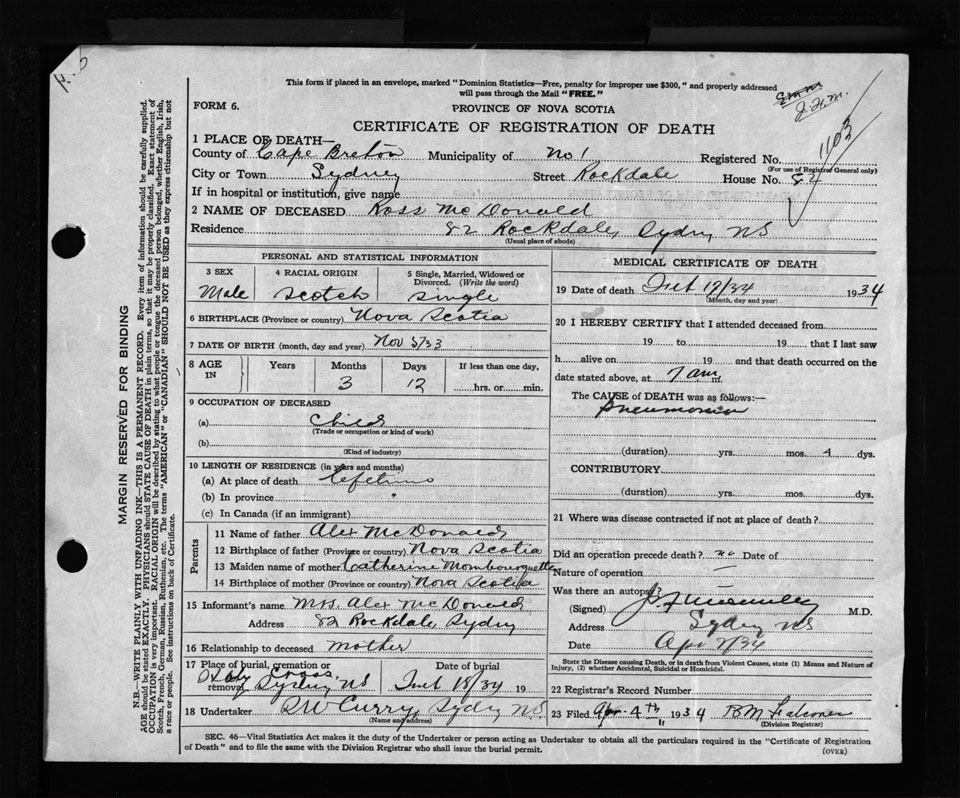 This form if placed in an envelope, marked "Dominion Statistics—Free, penalty for improper use $300," and properly addressed
will pass through the Mail "FREE."
FORM 6.
PROVINCE OF NOVA SCOTIA
CERTIFICATE OF REGISTRATION OF DEATH
1103
1 PLACE OF DEATH—
County of Cape Breton Municipality of No 1 Registered No.
(For use of Registrar General only)
City or Town Sydney Street Rockdale House No. 82
If in hospital or institution, give name
2 NAME OF DECEASED Ross McDonald
Residence 82 Rockdale, Sydney NS
(Usual place of abode)
PERSONAL AND STATISTICAL INFORMATION
3 SEX 4 RACIAL ORIGIN 5 Single, Married, Widowed or Divorced. (Write the word)
Male Scotch Single
6 BIRTHPLACE (Province or country) Nova Scotia
7 DATE OF BIRTH (month, day and year) Nov 5/33
8 AGE IN Years Months Days If less than one day,
3 12 hrs. or min.
9 OCCUPATION OF DECEASED
(a) Child
(Trade or occupation or kind of work)
(b)
(Kind of industry)
10 LENGTH OF RESIDENCE (in years and months)
(a) At place of death
(b) In province "
(c) In Canada (if an immigrant)
Parents
11 Name of father Alex McDonald
12 Birthplace of father (Province or country) Nova Scotia
13 Maiden name of mother Catherine Mombourquette
14 Birthplace of mother (Province or country) Nova Scotia
15 Informant's name Mrs. Alex McDonald
Address 82 Rockdale, Sydney
16 Relationship to deceased mother
17 Place of burial, cremation or removal Date of burial
Holy Cross Sydney NS 18/34 19
18 Undertaker Curry, Sydney N.S.
(Name and address)
MEDICAL CERTIFICATE OF DEATH
19 Date of death 17/34 1934
(Month, day and year)
20 I HEREBY CERTIFY that I attended deceased from
19 to 19 that I last saw
h alive on 19 and that death occurred on the
date stated above, at 7 am m.
The CAUSE of DEATH was as follows:—
Pneumonia
(duration) yrs. mos. 4 dys.
CONTRIBUTORY
(duration) yrs. mos. dys.
21 Where was disease contracted if not at place of death?
Did an operation precede death? no Date of
Nature of operation —
Was there an autopsy?
(Signed) M.D.
Address Sydney NS
Date Apr /34
State the Disease causing Death, or in death from Violent Causes, state (1) Means and Nature of
Injury, (2) whether Accidental, Suicidal or Homicidal.
22 Registrar's Record Number
23 Filed Apr 4th 1934
(Division Registrar)
SEC. 46—Vital Statistics Act makes it the duty of the Undertaker or person acting as Undertaker to obtain all the particulars required in the "Certificate of Registration
of Death" and to file the same with the Division Registrar who shall issue the burial permit.
(OVER)
MARGIN RESERVED FOR BINDING
N.B.—WRITE PLAINLY WITH UNFADING INK—THIS IS A PERMANENT RECORD. Every item of information should be carefully supplied.
AGE should be stated EXACTLY. PHYSICIANS should STATE CAUSE OF DEATH in plain terms, so that it may be properly classified. Exact statement of
OCCUPATION is very important. RACIAL ORIGIN will be described by stating to what people or tongue the deceased person belonged, whether English, Irish,
Scotch, French, German, Russian, Ruthenian, etc. The terms "AMERICAN" or "CANADIAN" SHOULD NOT BE USED as they express citizenship but not
a race or people. See instructions on back of Certificate.